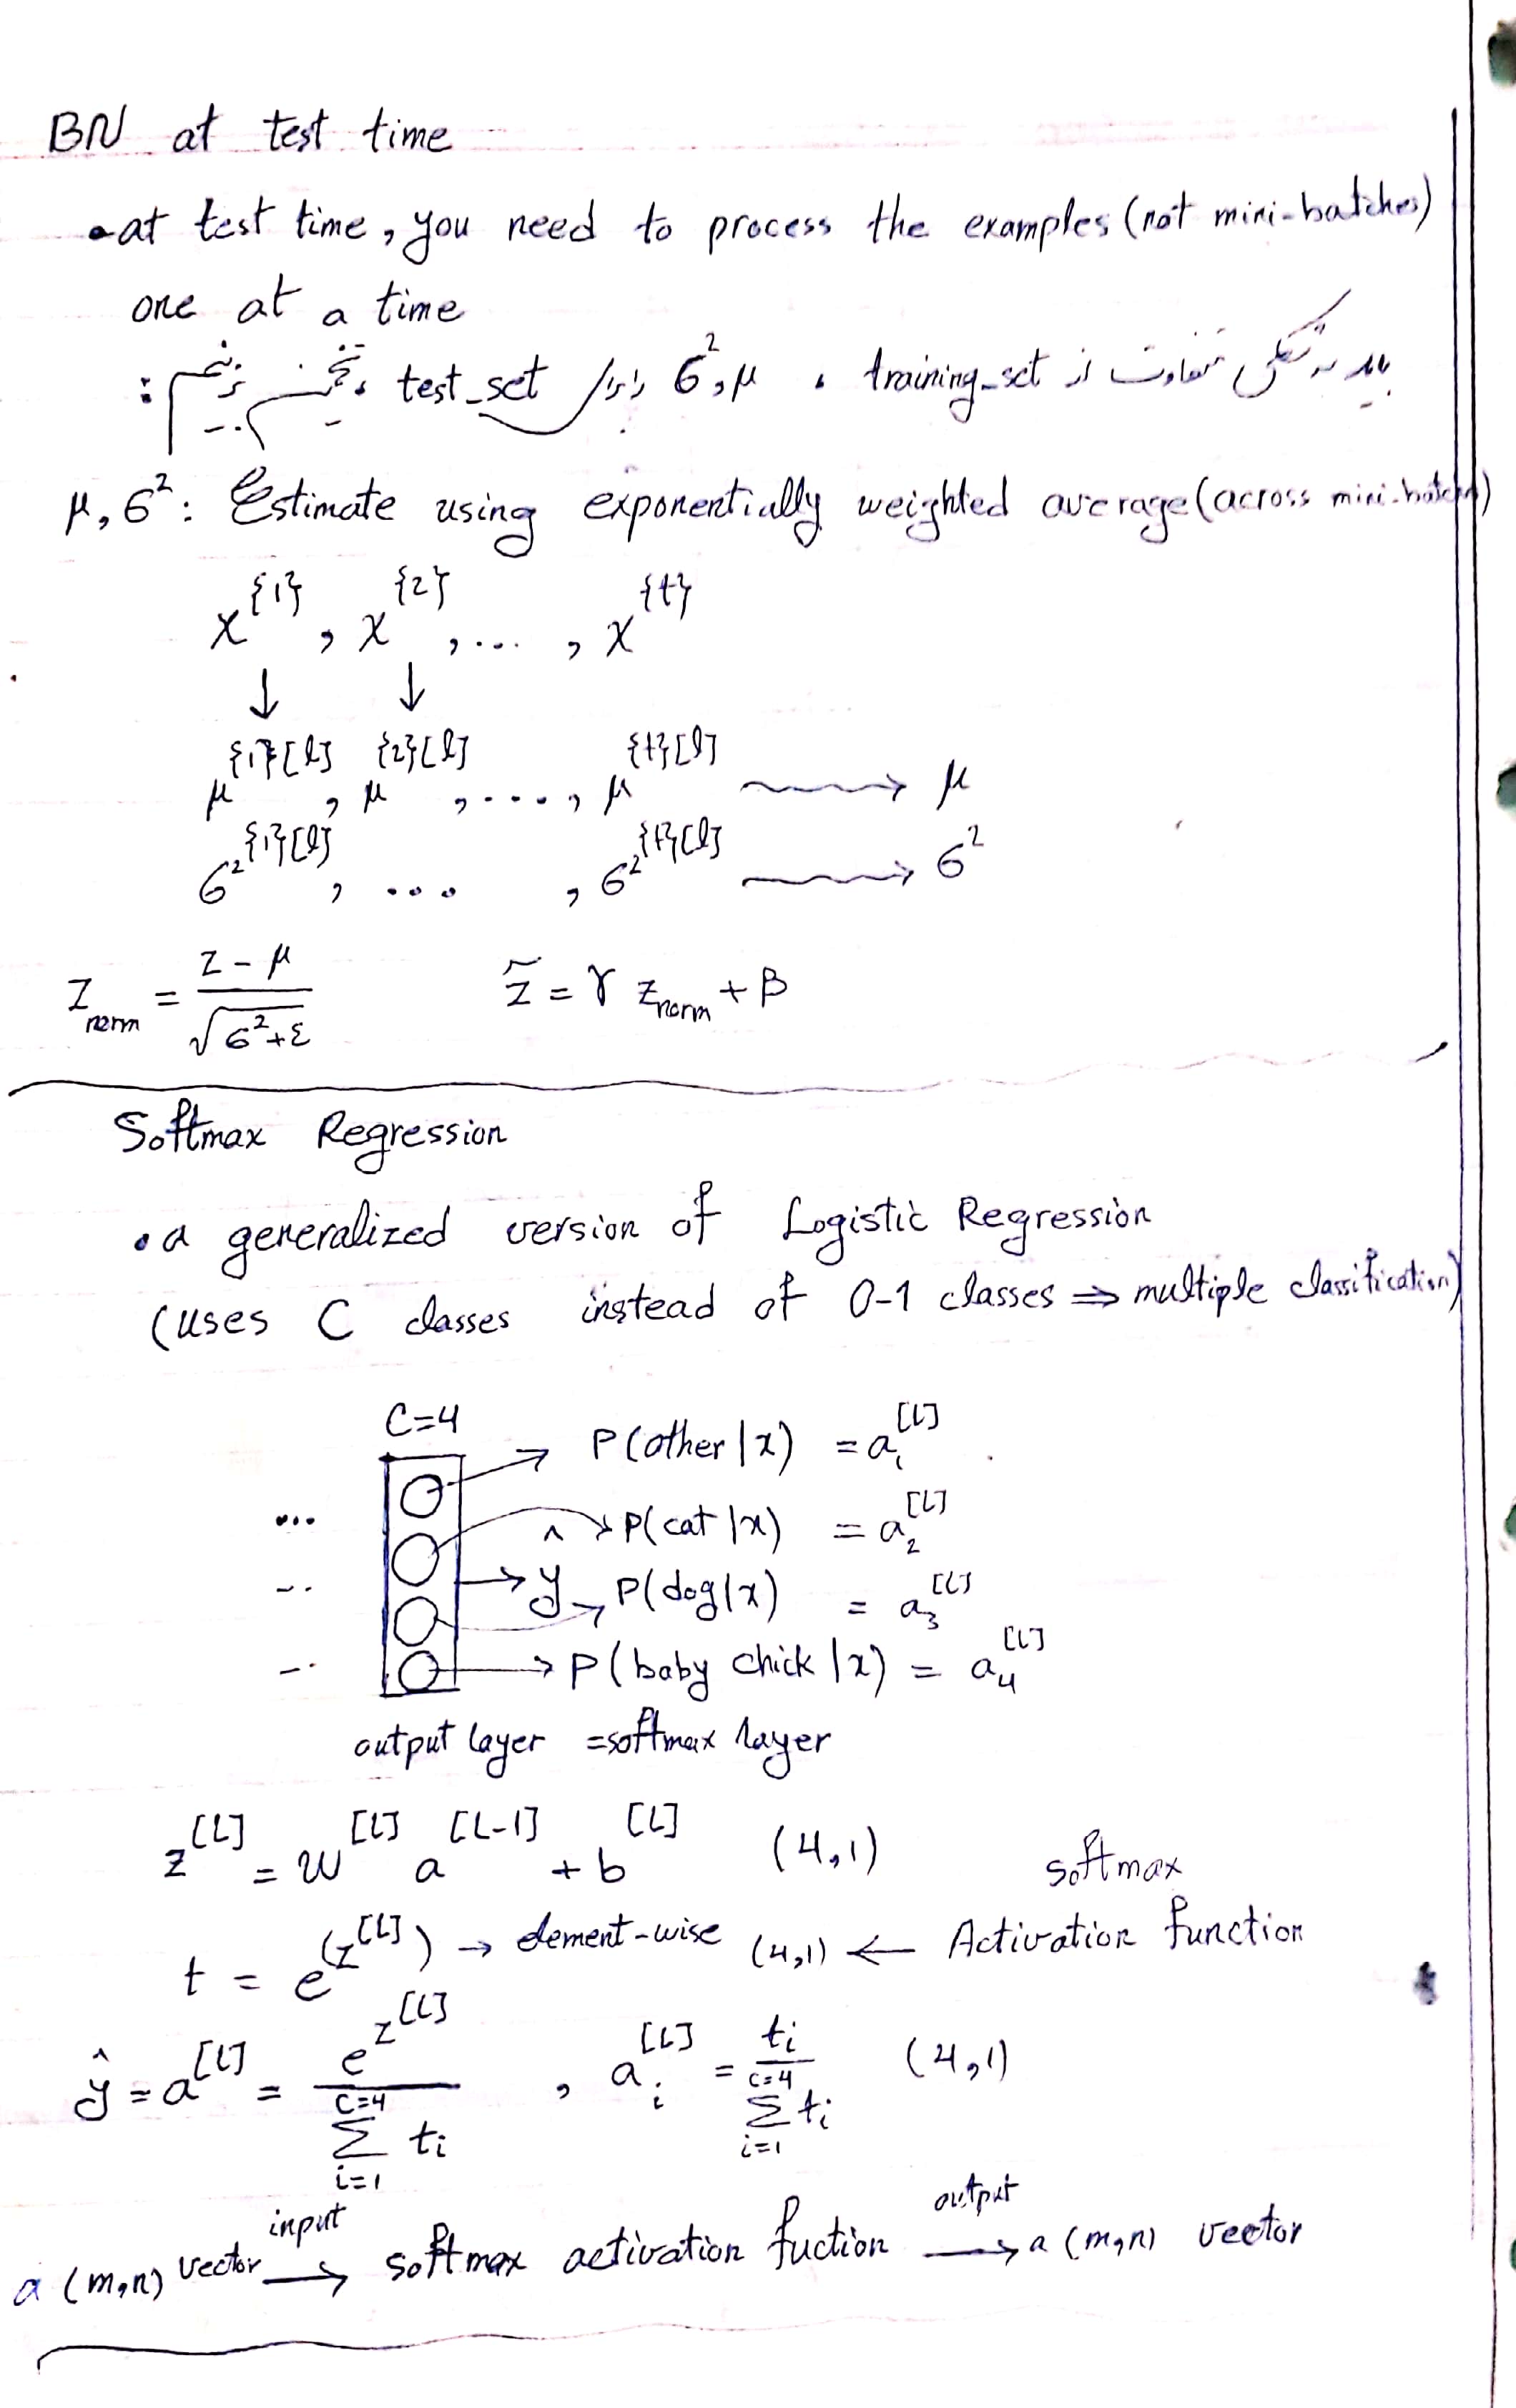 BN at test time
• at test time, you need to process the examples (not mini-batches)
one at a time
باید به شکلی متفاوت از training_set ، μ و σ² را برای test_set تخمین بزنیم :
μ, σ² : Estimate using exponentially weighted average (across mini-batches)
x^{1} , x^{2} , ... , x^{t}
↓ ↓
μ^{1}[l] , μ^{2}[l] , .... , μ^{t}[l] ⟶ μ
σ²^{1}[l] , ... , σ²^{t}[l] ⟶ σ²
Z_norm = (Z - μ) / √(σ² + ε)    Z̃ = γ Z_norm + β
Softmax Regression
• a generalized version of Logistic Regression
(uses C classes instead of 0-1 classes ⇒ multiple classification)
C=4
→ P(other | x) = a₁^[L]
... → P(cat | x) = a₂^[L]
... → ŷ → P(dog | x) = a₃^[L]
... → P(baby chick | x) = a₄^[L]
output layer = softmax layer
z^[L] = W^[L] a^[L-1] + b^[L] (4,1)
softmax
t = e^(z^[L]) → element-wise (4,1) ← Activation function
ŷ = a^[L] = e^z^[L] / Σ_{i=1}^{C=4} t_i , a_i^[L] = t_i / Σ_{i=1}^{C=4} t_i (4,1)
input output
a (m,n) vector ⟶ softmax activation fuction ⟶ a (m,n) vector